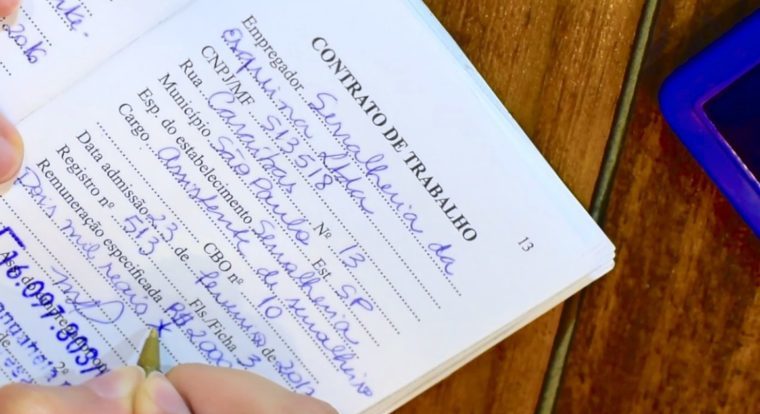 13
CONTRATO DE TRABALHO
Empregador Serralheria da
Esquina Ltda
CNPJ/MF 513518
Rua Caraíbas Nº 13
Município São Paulo Est. SP
Esp. do estabelecimento Serralheria
Cargo Assistente de serralheiro
CBO nº 10
Data admissão 23 de fevereiro de 2012
Registro nº 513 Fls./Ficha 3
Remuneração especificada R$ 2000
Dois mil reais
16.097.803
2016